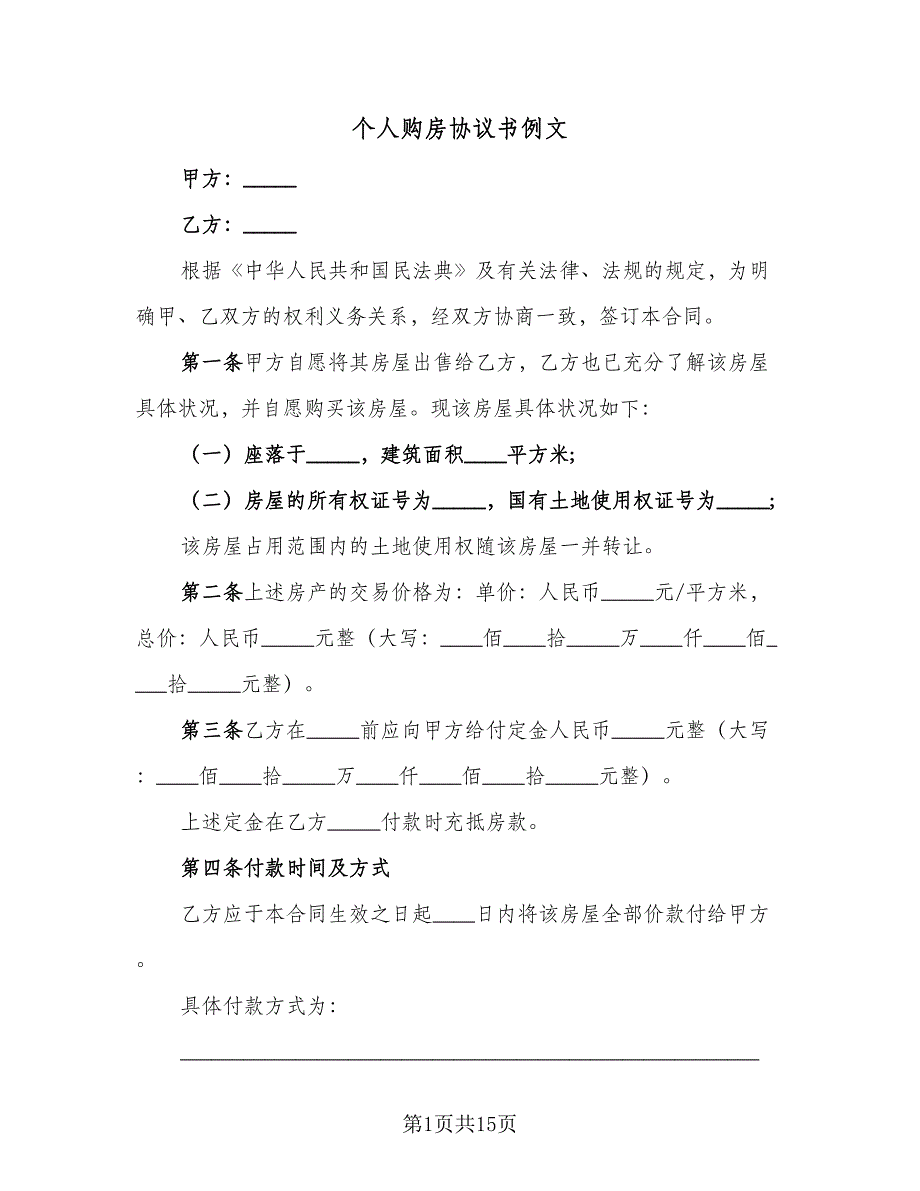 个人购房协议书例文
甲方：_____
乙方：_____
根据《中华人民共和国民法典》及有关法律、法规的规定，为明
确甲、乙双方的权利义务关系，经双方协商一致，签订本合同。
第一条甲方自愿将其房屋出售给乙方，乙方也已充分了解该房屋
具体状况，并自愿购买该房屋。现该房屋具体状况如下：
（一）座落于_____，建筑面积____平方米;
（二）房屋的所有权证号为_____，国有土地使用权证号为_____;
该房屋占用范围内的土地使用权随该房屋一并转让。
第二条上述房产的交易价格为：单价：人民币_____元/平方米，
总价：人民币_____元整（大写：____佰____拾_____万____仟____佰_
___拾_____元整）。
第三条乙方在_____前应向甲方给付定金人民币_____元整（大写
：____佰____拾_____万____仟____佰____拾_____元整）。
上述定金在乙方_____付款时充抵房款。
第四条付款时间及方式
乙方应于本合同生效之日起____日内将该房屋全部价款付给甲方
。
具体付款方式为：
_______________________________________________________
第1页共15页